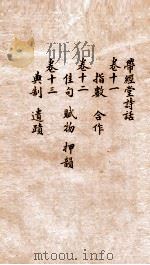 帶經堂詩話
卷十一
指數 合作
卷十二
佳句 賦物 押韻
卷十三
典制 遺蹟
PDG
http://www.mypicbook.com